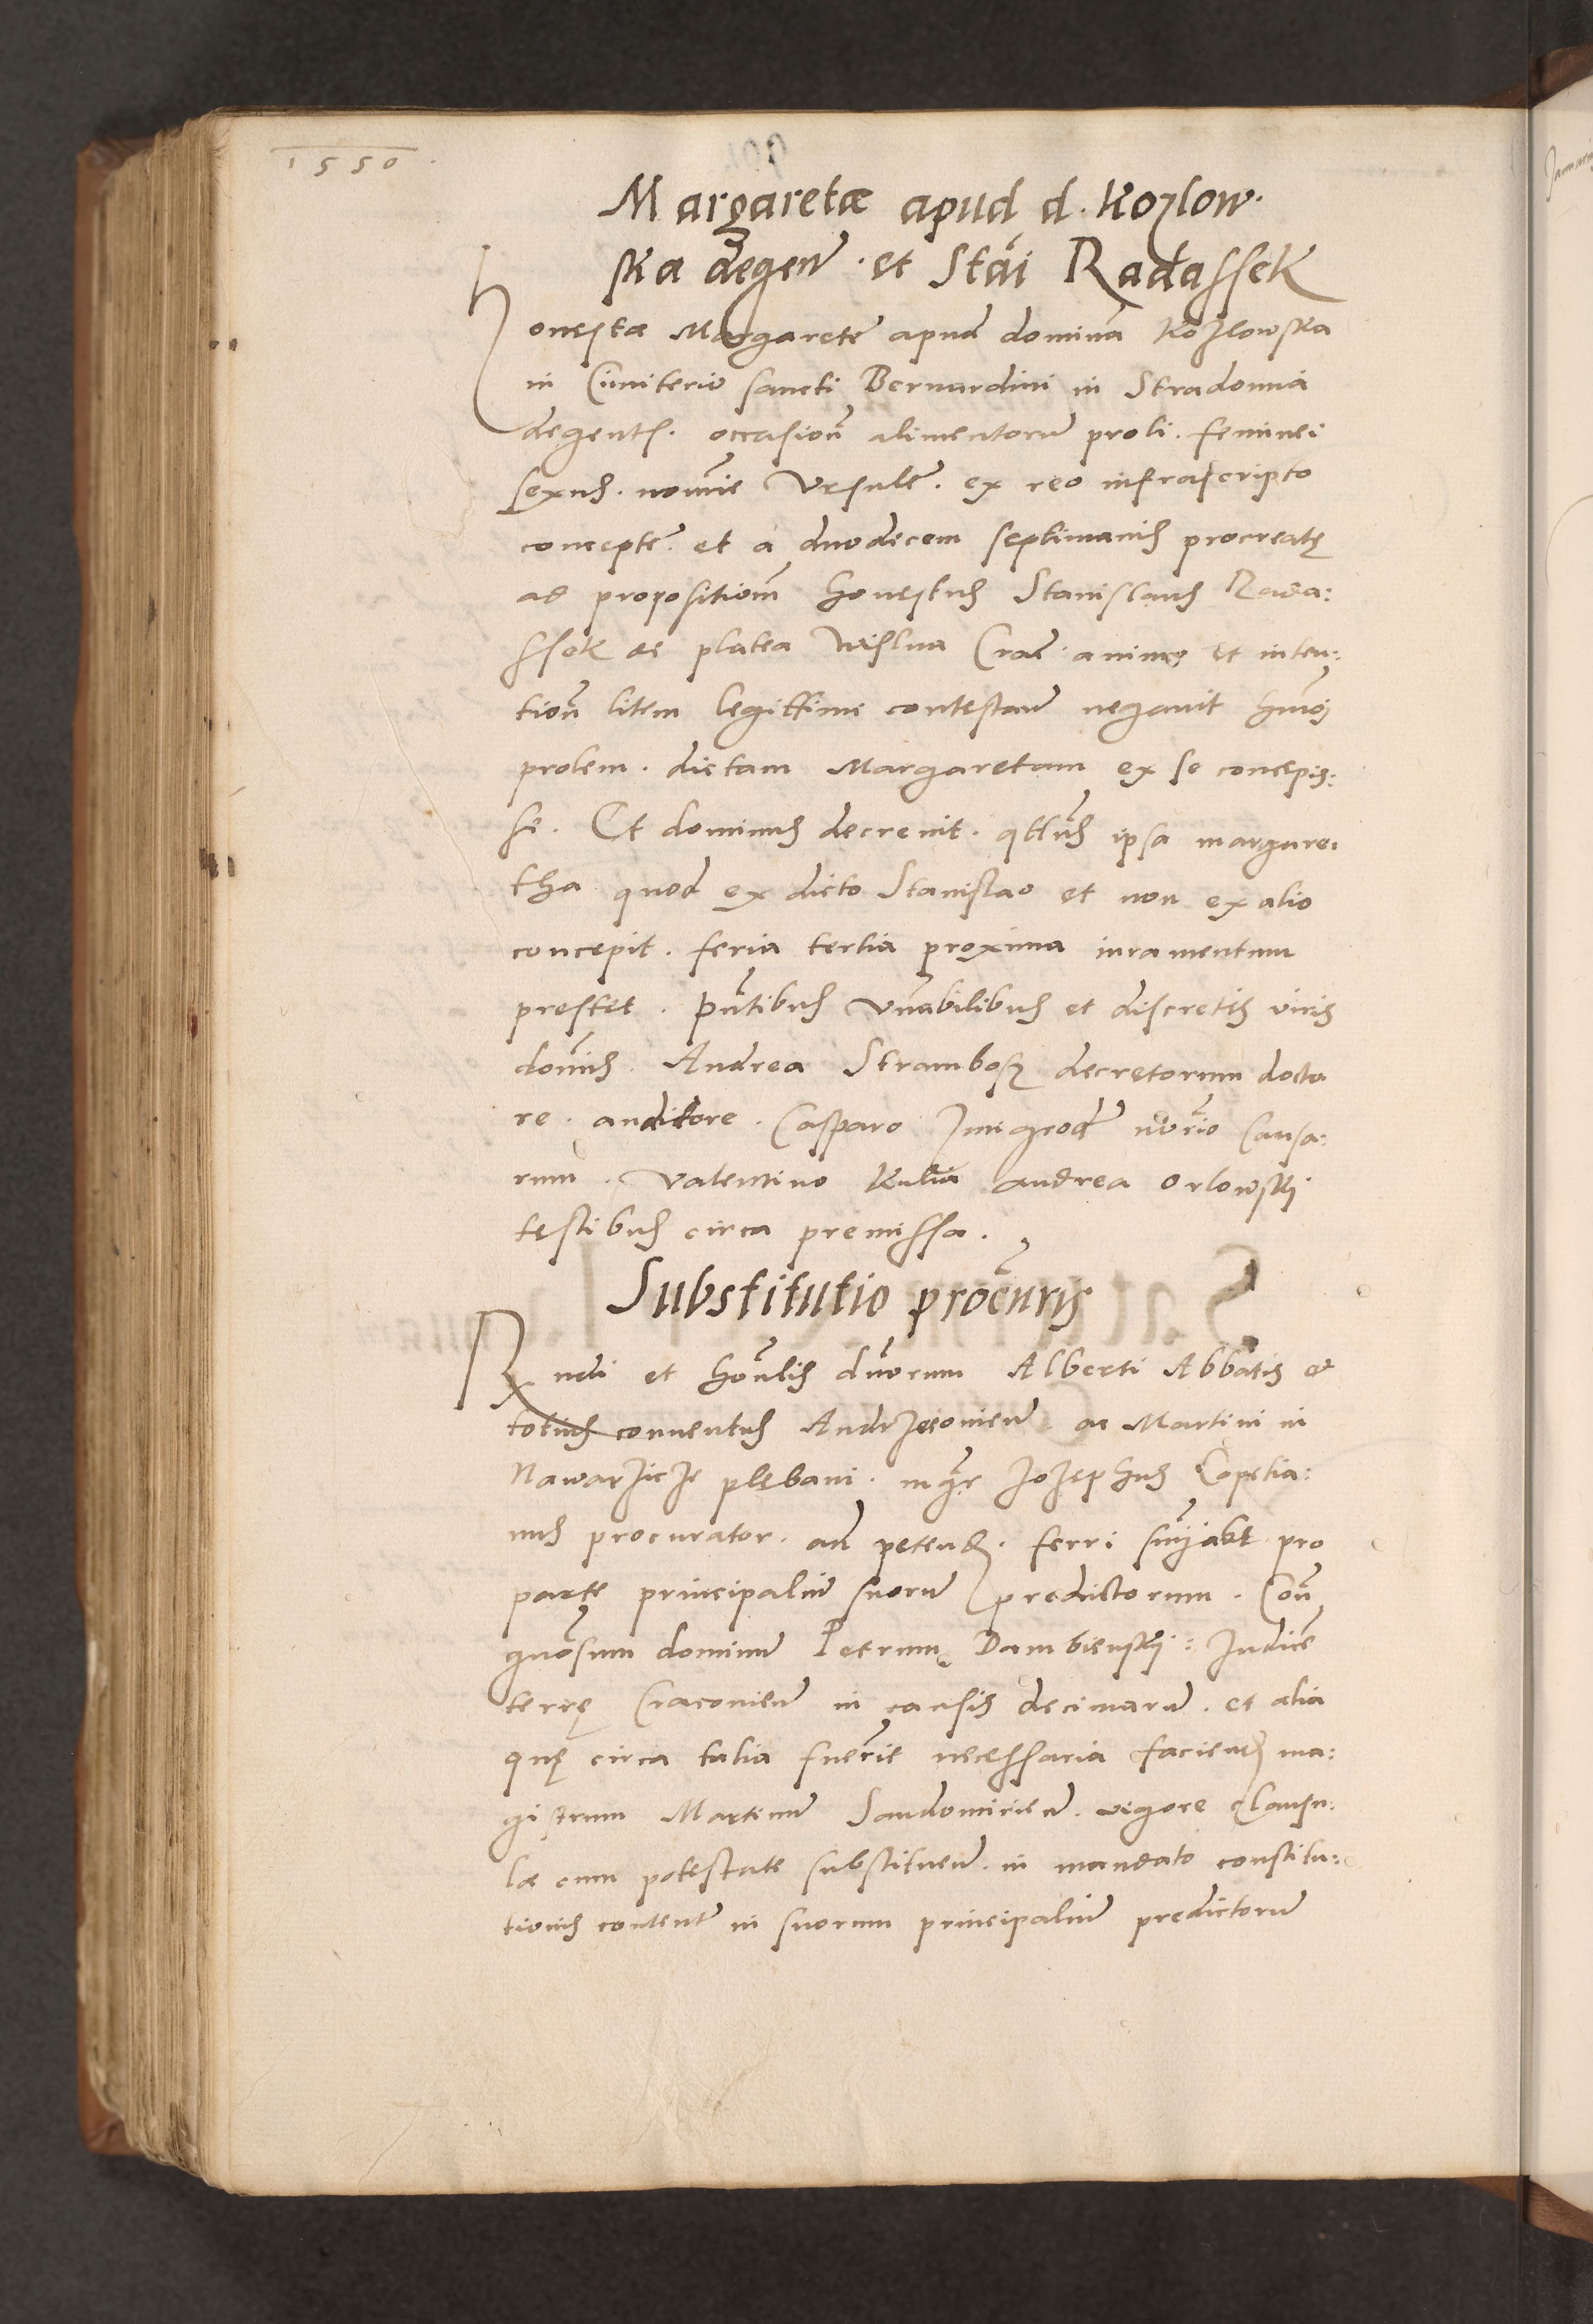 1550
Margaretæ apud d. Kozlow.
ska degeñ. et Stãi Radassek
Honestæ Margarete apud dominã Kozlowska
in Cimiterio sancti Bernardini in Stradomia
degentis. occasioñ alimentorũ proli. feminei
sexus. nomĩe Ursule. ex reo infrascripto
concepte. et a duodecem septimanis procreatę
ad propositioñ honestus Stanislaus Rada:
ssek de platea Wislna Crac̃. animo et inten:
tioñ litem legittime contestand̃ negavit hmõi
prolem. dictam Margaretam ex se concepis:
se. Et dominus decrevit. qtñus ipsa margare:
tha quod ex dicto Stanislao et non ex alio
concepit. feria tertia proxima iuramentum
prestet. pñtibus vnãbilibus et discretis viris
domĩs. Andrea Strambosz decretorum docto
re. auditore. Casparo Jmigrod̃ notr̃io Causa:
rum. Valentino Kulia Andrea Orlowskj
testibus circa premissa.
Substitutio procũris
Rx̃ndi et honr̃lis dñorum Alberti Abbatis et
totius conventus Andrzeiovieñ. ac Martini in
Nawarzicze plębani. mgr̃ Jozephus Copetia:
nus procurator. ad petend. ferri sm̃ jabt pro
parte principaliũ suorũ predictorum. Coñ
gnõsum dominũ Petrum Dambienskj: Judicẽ
terrę Cracovieñ in causis decimarũ. et alia
quę circa talia fuerĩt necessaria faciend ma:
gistrum Martinũ Sandomirieñ. vigore clausu:
læ cum potestate substituend̃. in mandato constitu:
tionis content̃ in suorum principaliũ predictorũ